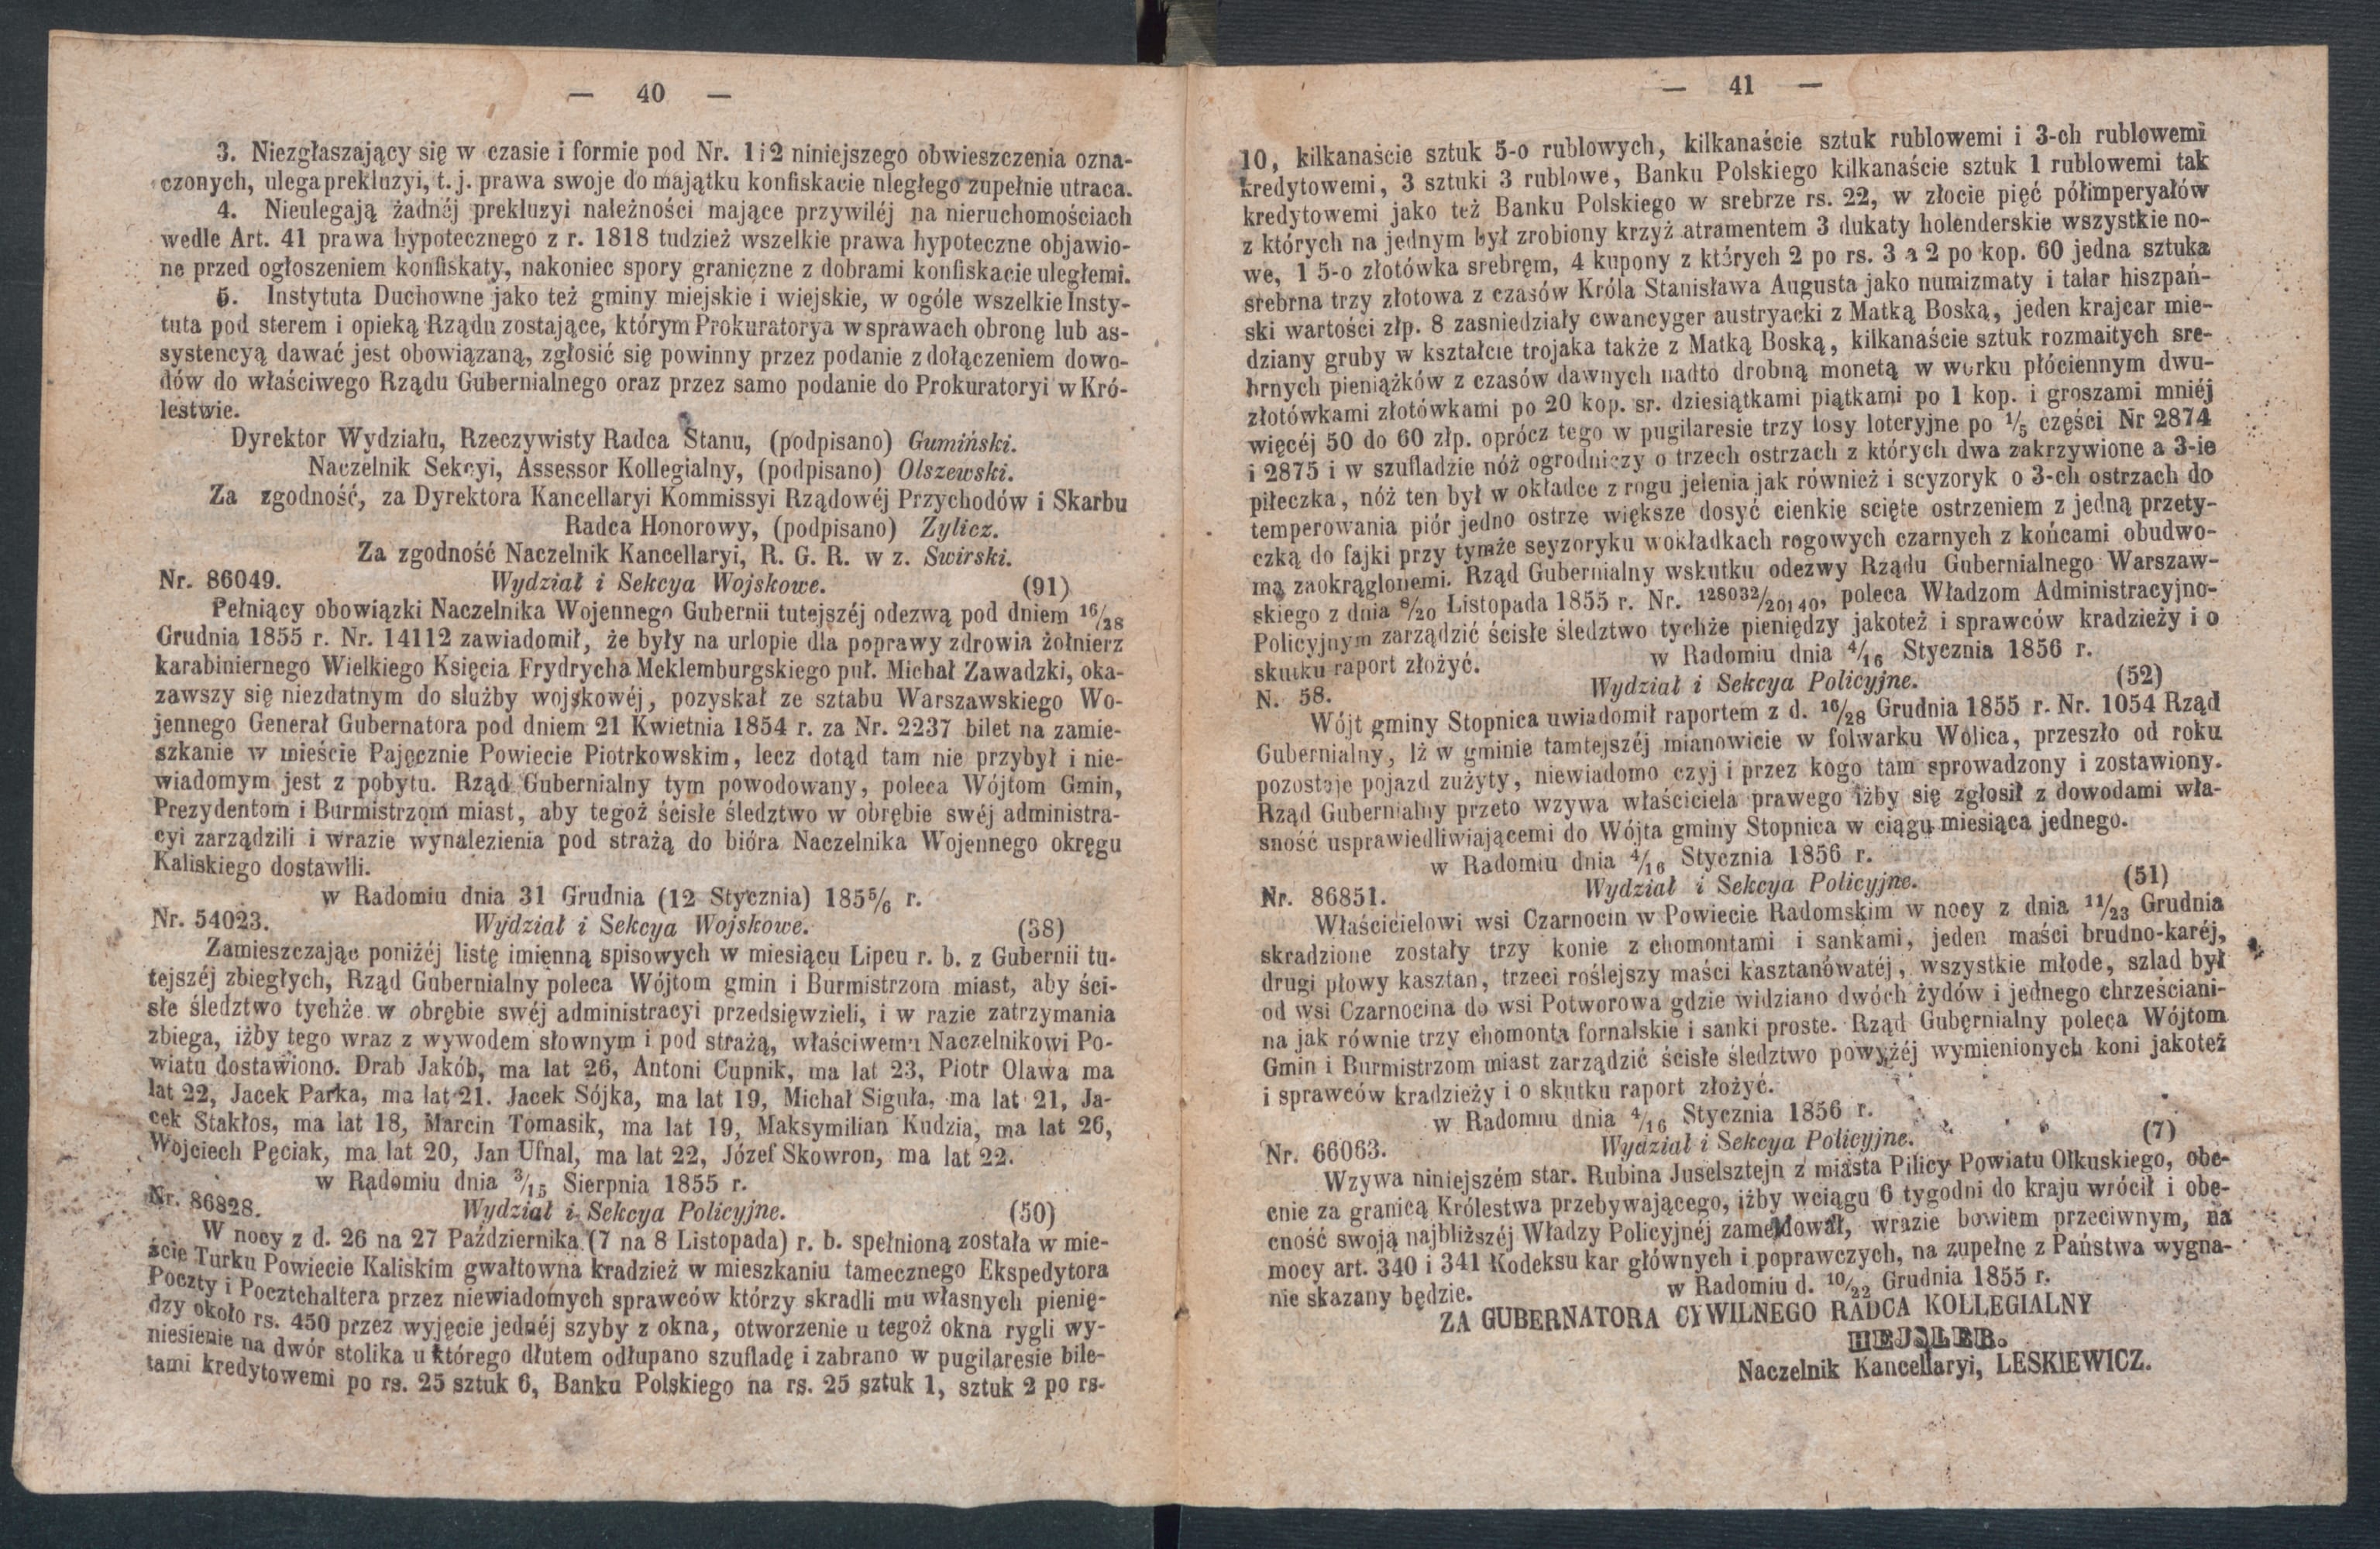 — 40 —
3. Niezgłaszający się w czasie i formie pod Nr. 1 i 2 niniejszego obwieszczenia ozna-
czonych, ulega prekluzyi, t. j. prawa swoje do majątku konfiskacie uległego zupełnie utraca.
4. Nieulegają żadnéj prekluzyi należności mające przywiléj na nieruchomościach
wedle Art. 41 prawa hypotecznego z r. 1818 tudzież wszelkie prawa hypoteczne objawio-
ne przed ogłoszeniem konfiskaty, nakoniec spory graniczne z dobrami konfiskacie uległemi.
5. Instytuta Duchowne jako też gminy miejskie i wiejskie, w ogóle wszelkie Insty-
tuta pod sterem i opieką Rządu zostające, którym Prokuratorya w sprawach obronę lub as-
systencyą dawać jest obowiązaną, zgłosić się powinny przez podanie z dołączeniem dowo-
dów do właściwego Rządu Gubernialnego oraz przez samo podanie do Prokuratoryi w Kró-
lestwie.
Dyrektor Wydziału, Rzeczywisty Radca Stanu, (podpisano) Gumiński.
Naczelnik Sekcyi, Assessor Kollegialny, (podpisano) Olszewski.
Za zgodność, za Dyrektora Kancellaryi Kommissyi Rządowéj Przychodów i Skarbu
Radca Honorowy, (podpisano) Żylicz.
Za zgodność Naczelnik Kancellaryi, R. G. R. w z. Swirski.
Nr. 86049. Wydział i Sekcya Wojskowe. (91)
Pełniący obowiązki Naczelnika Wojennego Gubernii tutejszéj odezwą pod dniem 16/28
Grudnia 1855 r. Nr. 14112 zawiadomił, że były na urlopie dla poprawy zdrowia żołnierz
karabiniernego Wielkiego Księcia Frydrycha Meklemburgskiego puł. Michał Zawadzki, oka-
zawszy się niezdatnym do służby wojskowéj, pozyskał ze sztabu Warszawskiego Wo-
jennego Generał Gubernatora pod dniem 21 Kwietnia 1854 r. za Nr. 2237 bilet na zamie-
szkanie w mieście Pajęcznie Powiecie Piotrkowskim, lecz dotąd tam nie przybył i nie-
wiadomym jest z pobytu. Rząd Gubernialny tym powodowany, poleca Wójtom Gmin,
Prezydentom i Burmistrzom miast, aby tegoż ścisłe śledztwo w obrębie swéj administra-
cyi zarządzili i wrazie wynalezienia pod strażą do bióra Naczelnika Wojennego okręgu
Kaliskiego dostawili.
w Radomiu dnia 31 Grudnia (12 Stycznia) 1855/6 r.
Nr. 54023. Wydział i Sekcya Wojskowe. (38)
Zamieszczając poniżéj listę imienną spisowych w miesiącu Lipcu r. b. z Gubernii tu-
tejszéj zbiegłych, Rząd Gubernialny poleca Wójtom gmin i Burmistrzom miast, aby ści-
słe śledztwo tychże w obrębie swéj administracyi przedsięwzieli, i w razie zatrzymania
zbiega, iżby tego wraz z wywodem słownym i pod strażą, właściwemu Naczelnikowi Po-
wiatu dostawiono. Drab Jakób, ma lat 26, Antoni Cupnik, ma lat 23, Piotr Olawa ma
lat 22, Jacek Parka, ma lat 21. Jacek Sójka, ma lat 19, Michał Siguła, ma lat 21, Ja-
cek Stakłos, ma lat 18, Marcin Tomasik, ma lat 19, Maksymilian Kudzia, ma lat 26,
Wojciech Pęciak, ma lat 20, Jan Ufnal, ma lat 22, Józef Skowron, ma lat 22.
w Radomiu dnia 3/15 Sierpnia 1855 r.
Nr. 86828. Wydział i Sekcya Policyjne. (50)
W nocy z d. 26 na 27 Października (7 na 8 Listopada) r. b. spełnioną została w mie-
ście Turku Powiecie Kaliskim gwałtowna kradzież w mieszkaniu tamecznego Ekspedytora
Poczty i Pocztchaltera przez niewiadomych sprawców którzy skradli mu własnych pienię-
dzy około rs. 450 przez wyjęcie jednéj szyby z okna, otworzenie u tegoż okna rygli wy-
niesienie na dwór stolika u którego dłutem odłupano szufladę i zabrano w pugilaresie bile-
tami kredytowemi po rs. 25 sztuk 6, Banku Polskiego na rs. 25 sztuk 1, sztuk 2 po rs.
— 41 —
10, kilkanaście sztuk 5-o rublowych, kilkanaście sztuk rublowemi i 3-ch rublowemi
kredytowemi, 3 sztuki 3 rublowe, Banku Polskiego kilkanaście sztuk 1 rublowemi tak
kredytowemi jako też Banku Polskiego w srebrze rs. 22, w złocie pięć półimperyałów
z których na jednym był zrobiony krzyż atramentem 3 dukaty holenderskie wszystkie no-
we, 1 5-o złotówka srebrem, 4 kupony z których 2 po rs. 3 a 2 po kop. 60 jedna sztuka
srebrna trzy złotowa z czasów Króla Stanisława Augusta jako numizmaty i talar hiszpań-
ski wartości złp. 8 zasniedziały cwancyger austryacki z Matką Boską, jeden krajcar mie-
dziany gruby w kształcie trojaka także z Matką Boską, kilkanaście sztuk rozmaitych sre-
brnych pieniążków z czasów dawnych nadto drobną monetą w worku płóciennym dwu-
złotówkami złotówkami po 20 kop. sr. dziesiątkami piątkami po 1 kop. i groszami mniéj
więcéj 50 do 60 złp. oprócz tego w pugilaresie trzy losy loteryjne po 1/5 części Nr 2874
i 2875 i w szufladzie nóż ogrodniczy o trzech ostrzach z których dwa zakrzywione a 3-ie
piłeczka, nóż ten był w okładce z rogu jelenia jak również i scyzoryk o 3-ch ostrzach do
temperowania piór jedno ostrze większe dosyć cienkie ścięte ostrzeniem z jedną przety-
czką do fajki przy tymże scyzoryku w okładkach rogowych czarnych z końcami obudwo-
ma zaokrąglonemi. Rząd Gubernialny wskutku odezwy Rządu Gubernialnego Warszaw-
skiego z dnia 8/20 Listopada 1855 r. Nr. 128032/20140, poleca Władzom Administracyjno-
Policyjnym zarządzić ścisłe śledztwo tychże pieniędzy jakoteż i sprawców kradzieży i o
skutku raport złożyć. w Radomiu dnia 4/16 Stycznia 1856 r.
N. 58. Wydział i Sekcya Policyjne. (52)
Wójt gminy Stopnica uwiadomił raportem z d. 16/28 Grudnia 1855 r. Nr. 1054 Rząd
Gubernialny, Iż w gminie tamtejszéj mianowicie w folwarku Wolica, przeszło od roku
pozostaje pojazd zużyty, niewiadomo czyj i przez kogo tam sprowadzony i zostawiony.
Rząd Gubernialny przeto wzywa właściciela prawego iżby się zgłosił z dowodami wła-
sność usprawiedliwiającemi do Wójta gminy Stopnica w ciągu miesiąca jednego.
w Radomiu dnia 4/16 Stycznia 1856 r.
Nr. 86851. Wydział i Sekcya Policyjne. (51)
Właścicielowi wsi Czarnocin w Powiecie Radomskim w nocy z dnia 11/23 Grudnia
skradzione zostały trzy konie z chomontami i sankami, jeden maści brudno-karéj,
drugi płowy kasztan, trzeci roślejszy maści kasztanowatéj, wszystkie młode, szlad był
od wsi Czarnocina do wsi Potworowa gdzie widziano dwóch żydów i jednego chrześciani-
na jak równie trzy chomonta fornalskie i sanki proste. Rząd Gubernialny poleca Wójtom
Gmin i Burmistrzom miast zarządzić ścisłe śledztwo powyżéj wymienionych koni jakoteż
i sprawców kradzieży i o skutku raport złożyć.
w Radomiu dnia 4/16 Stycznia 1856 r.
Nr. 66063. Wydział i Sekcya Policyjne. (7)
Wzywa niniejszém star. Rubina Juselsztejn z miasta Pilicy Powiatu Olkuskiego, obe-
cnie za granicą Królestwa przebywającego, iżby wciągu 6 tygodni do kraju wrócił i obe-
cność swoją najbliższéj Władzy Policyjnéj zameldował, wrazie bowiem przeciwnym, na
mocy art. 340 i 341 Kodeksu kar głównych i poprawczych, na zupełne z Państwa wygna-
nie skazany będzie. w Radomiu d. 10/22 Grudnia 1855 r.
ZA GUBERNATORA CYWILNEGO RADCA KOLLEGIALNY
HEJSLER.
Naczelnik Kancellaryi, LESKIEWICZ.